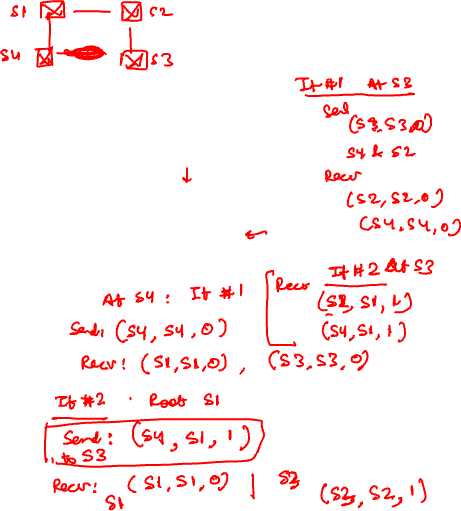 S1 S2
S4 S3
It #1 At S3
Send
(S3, S3, 0)
S4 & S2
Recv
(S2, S2, 0)
(S4, S4, 0)
It #2 At S3
Recv
(S2, S1, 1)
(S4, S1, 1)
At S4 : It #1
Send: (S4, S4, 0)
Recv: (S1, S1, 0), (S3, S3, 0)
It #2 . Root S1
Send: (S4, S1, 1)
to S3
Recv: (S1, S1, 0) | S3 (S3, S2, 1)
S1